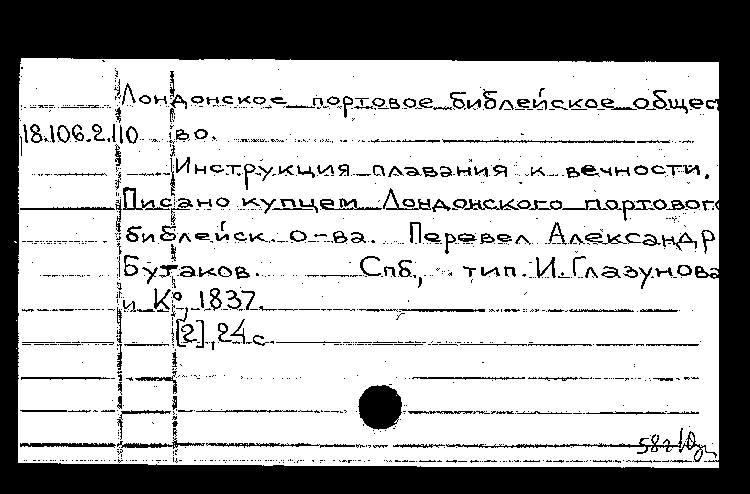 Лондонское портовое библейское общест
18.106.2.110 во.
Инструкция плавания к вечности.
Писано купцем Лондонского портового
библейск. о-ва. Перевел Александр
Бутаков. Спб., тип. И. Глазунова
и К°, 1837.
[2], 24 с.